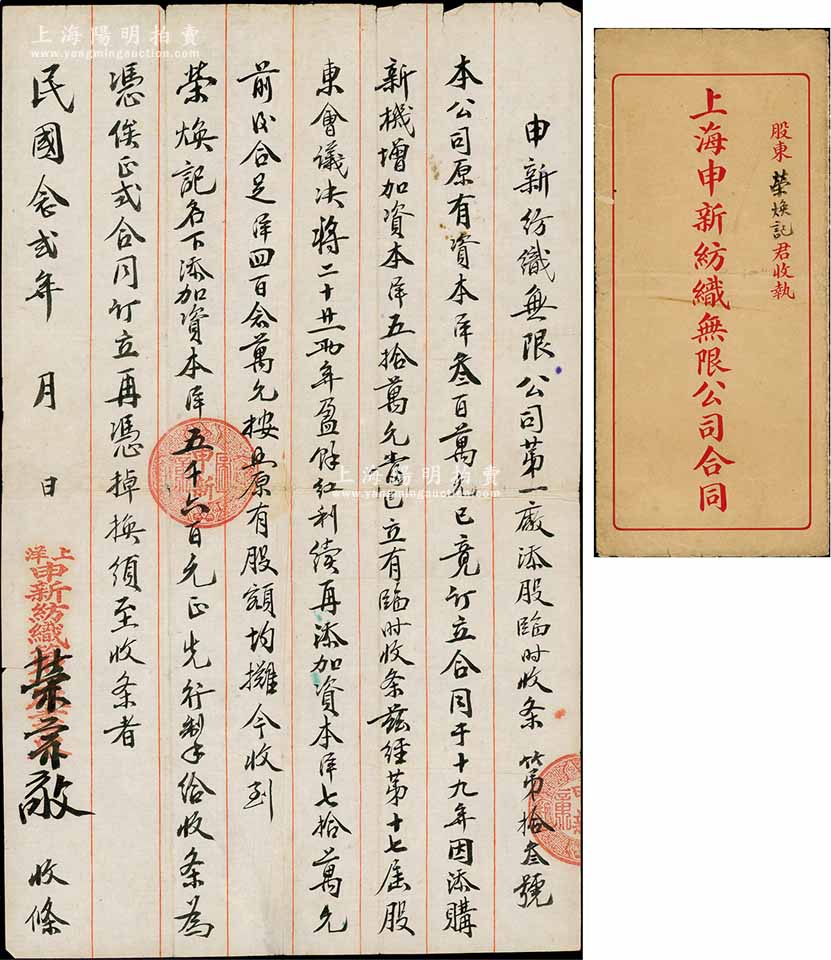 上海陽明拍賣
www.yangmingauction.com
申新紡織無限公司第一廠添股臨時收条 第拾叁號
本公司原有資本洋叁百萬元已竟订立合同于十九年因添購
新機增加資本洋五拾萬元當已立有臨时收条茲經第十七届股
東會議决將二十廿一兩年盈餘紅利續再添加資本洋七拾萬元
前後合足洋四百念萬元按照原有股額均攤今收到
榮焕記名下添加資本洋五千六百元正先行製給收条為
憑俟正式合同订立再憑掉换須至收条者
民國念弍年 月 日
上洋申新紡織
榮宗敬 收條
申新
上海陽明拍賣
www.yangmingauction.com
股東 榮焕記 君收執
上海申新紡織無限公司合同